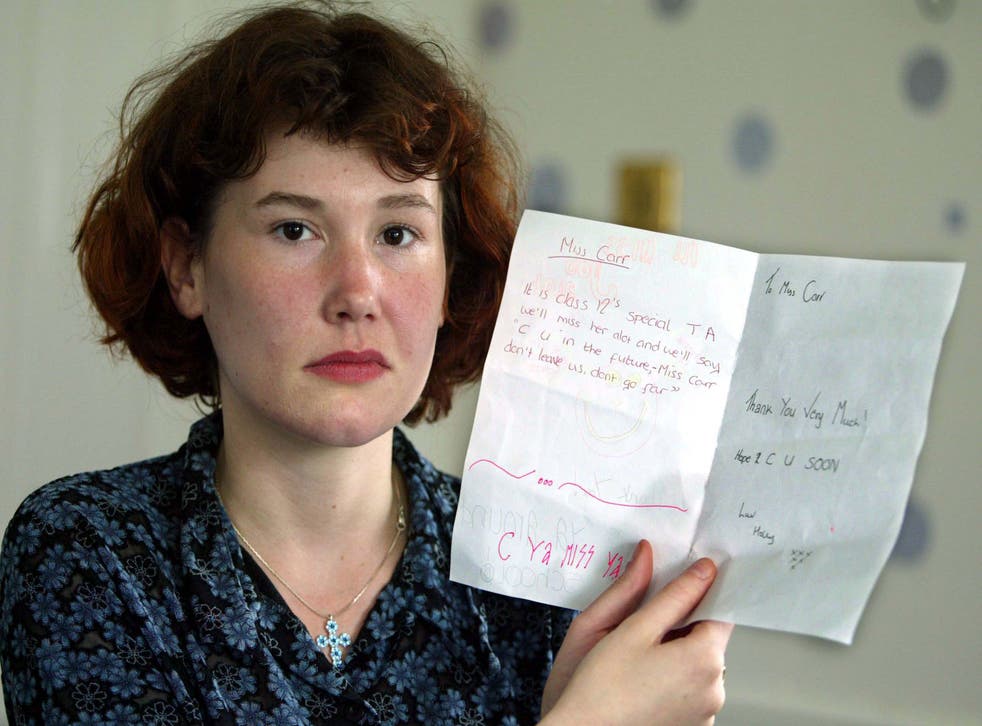 Miss Carr
"It is class 12's special TA
we'll miss her alot and we'll say
"C U" in the future,-Miss Carr
don't leave us, dont go far"
C Ya MISS Ya
To Miss Carr
Thank You Very Much!
Hope 2 C U SOON
Luv
Holly
xxx
xx
x